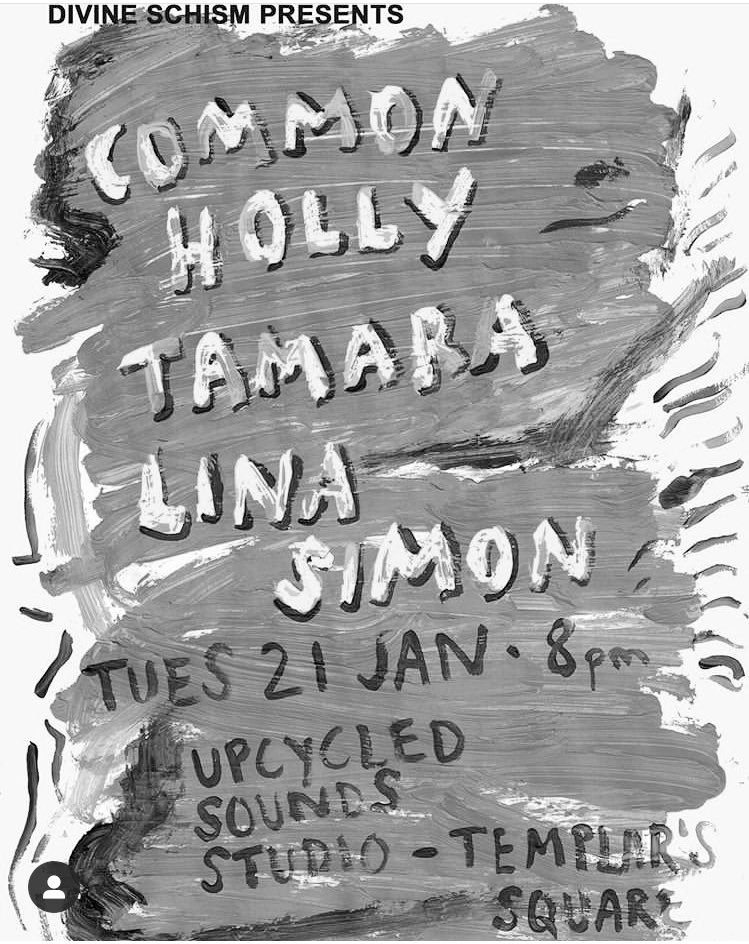 DIVINE SCHISM PRESENTS
COMMON
HOLLY
TAMARA
LINA
SIMON
TUES 21 JAN · 8pm
UPCYCLED
SOUNDS
STUDIO - TEMPLAR'S
SQUARE